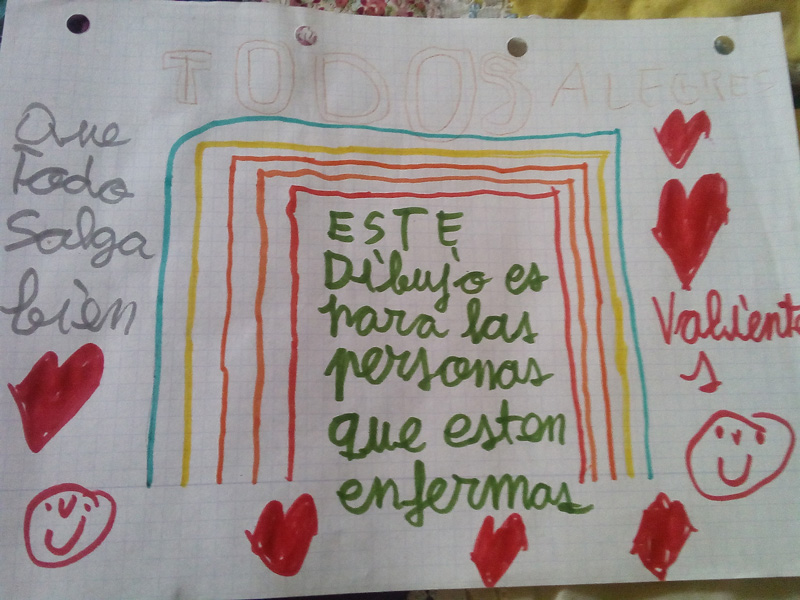 TODOS ALEGRES
Que
Todo
Salga
bien
ESTE
Dibujo es
para las
personas
que esten
enfermas
Valiente
s